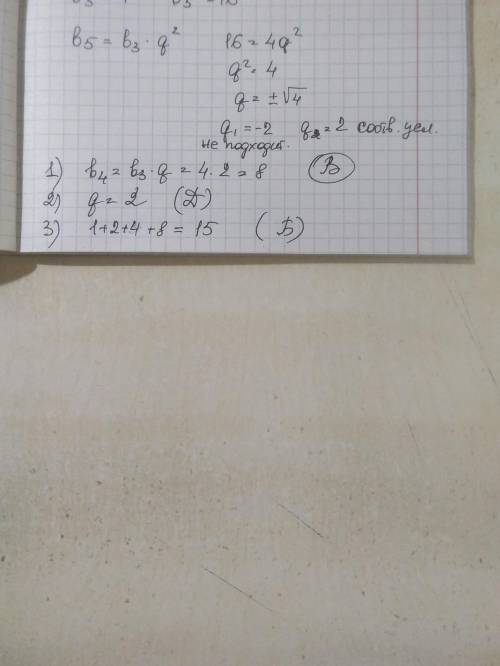 b₅ = b₃ · q² 16 = 4q²
q² = 4
q = ±√4
q₁ = -2 q₂ = 2 соотв. усл.
не подходит.
1) b₄ = b₃ · q = 4 · 2 = 8 (В)
2) q = 2 (Д)
3) 1+2+4+8 = 15 (Б)